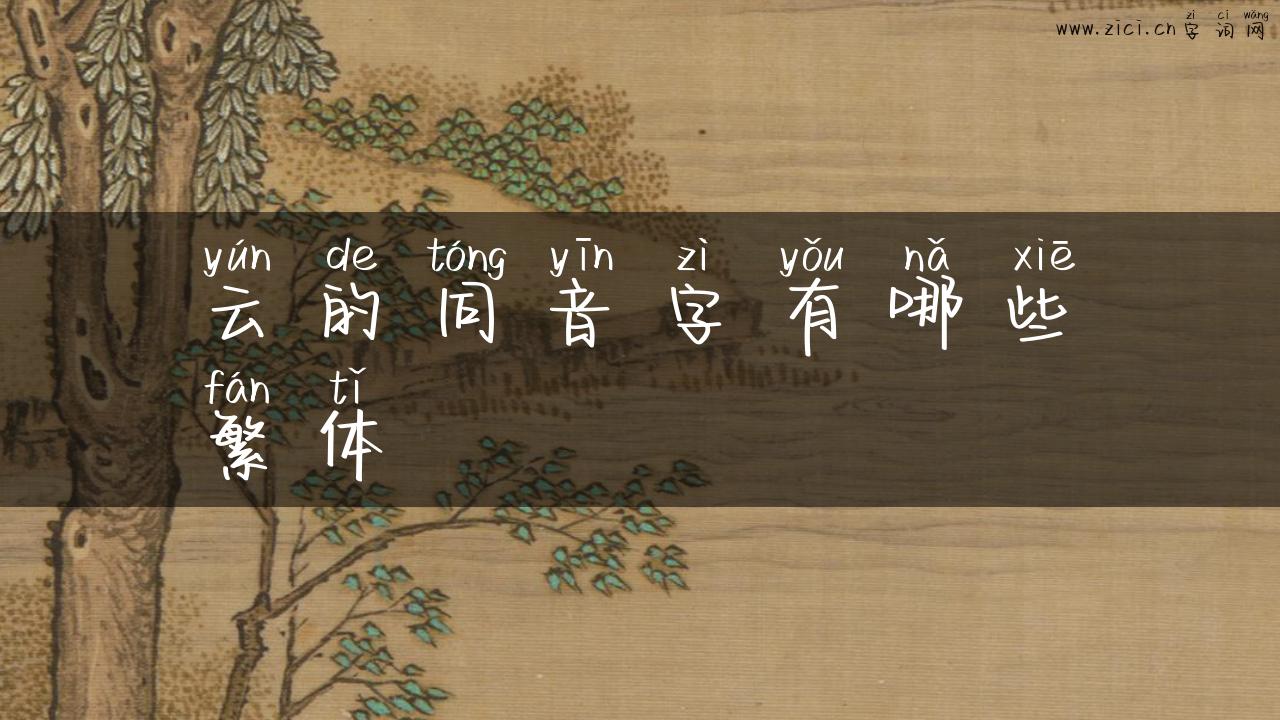 zì cí wǎng
www.zici.cn 字词网
yún de tóng yīn zì yǒu nǎ xiē
云的同音字有哪些
fán tǐ
繁体